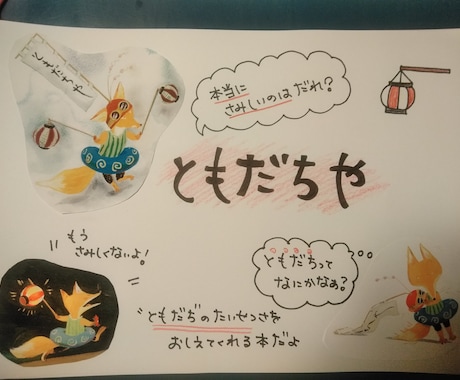 ともだちや
本当に
さみしいのはだれ?
ともだちや
もう
さみしくないよ!
ともだちって
なにかなぁ?
"ともだち"のたいせつさを
おしえてくれる本だよ